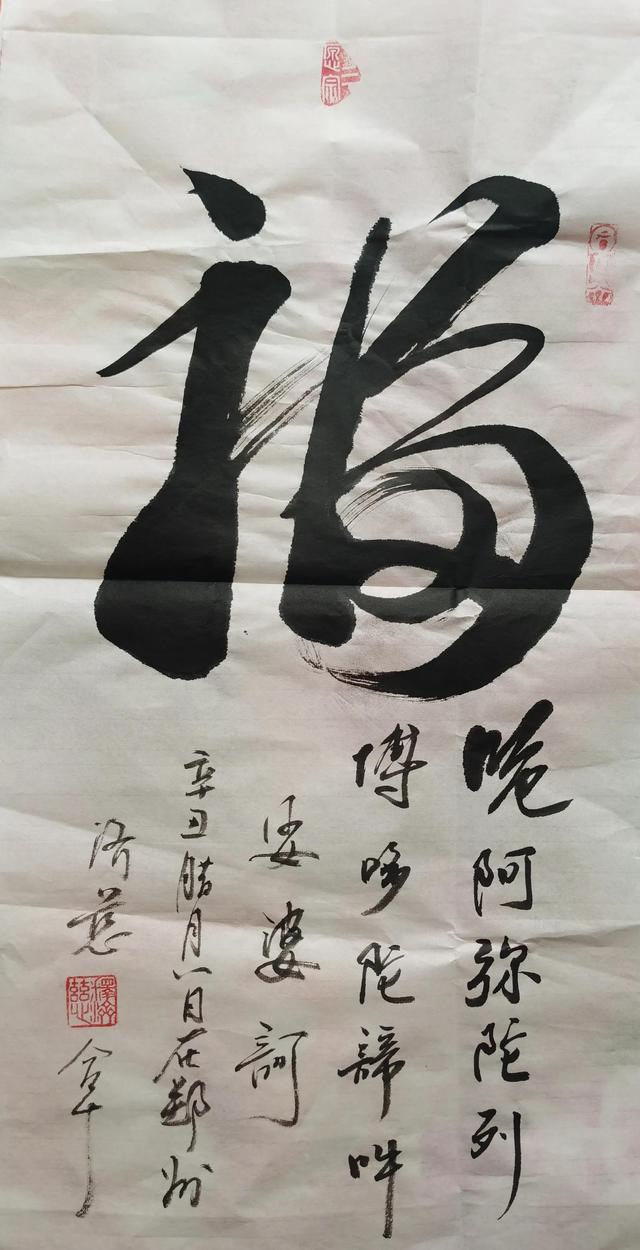 福
唵阿弥陀列
博哆陀諦吽
娑婆訶
辛丑腊月八日在鄭州
济慈
合十